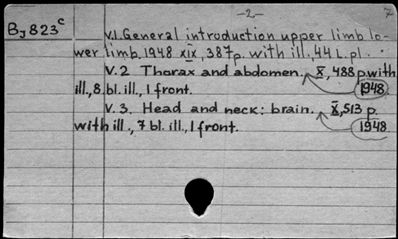 -2-
7
BJ823c
V.1. General introduction upper limb lo-
wer limb. 1948. XIX, 387p. with ill., 44 l. pl.
V.2 Thorax and abdomen. X, 488 p. with
ill., 8. bl. ill., 1 front. 1948
V.3. Head and neck: brain. X, 513 p.
with ill., 7 bl. ill., 1 front. 1948